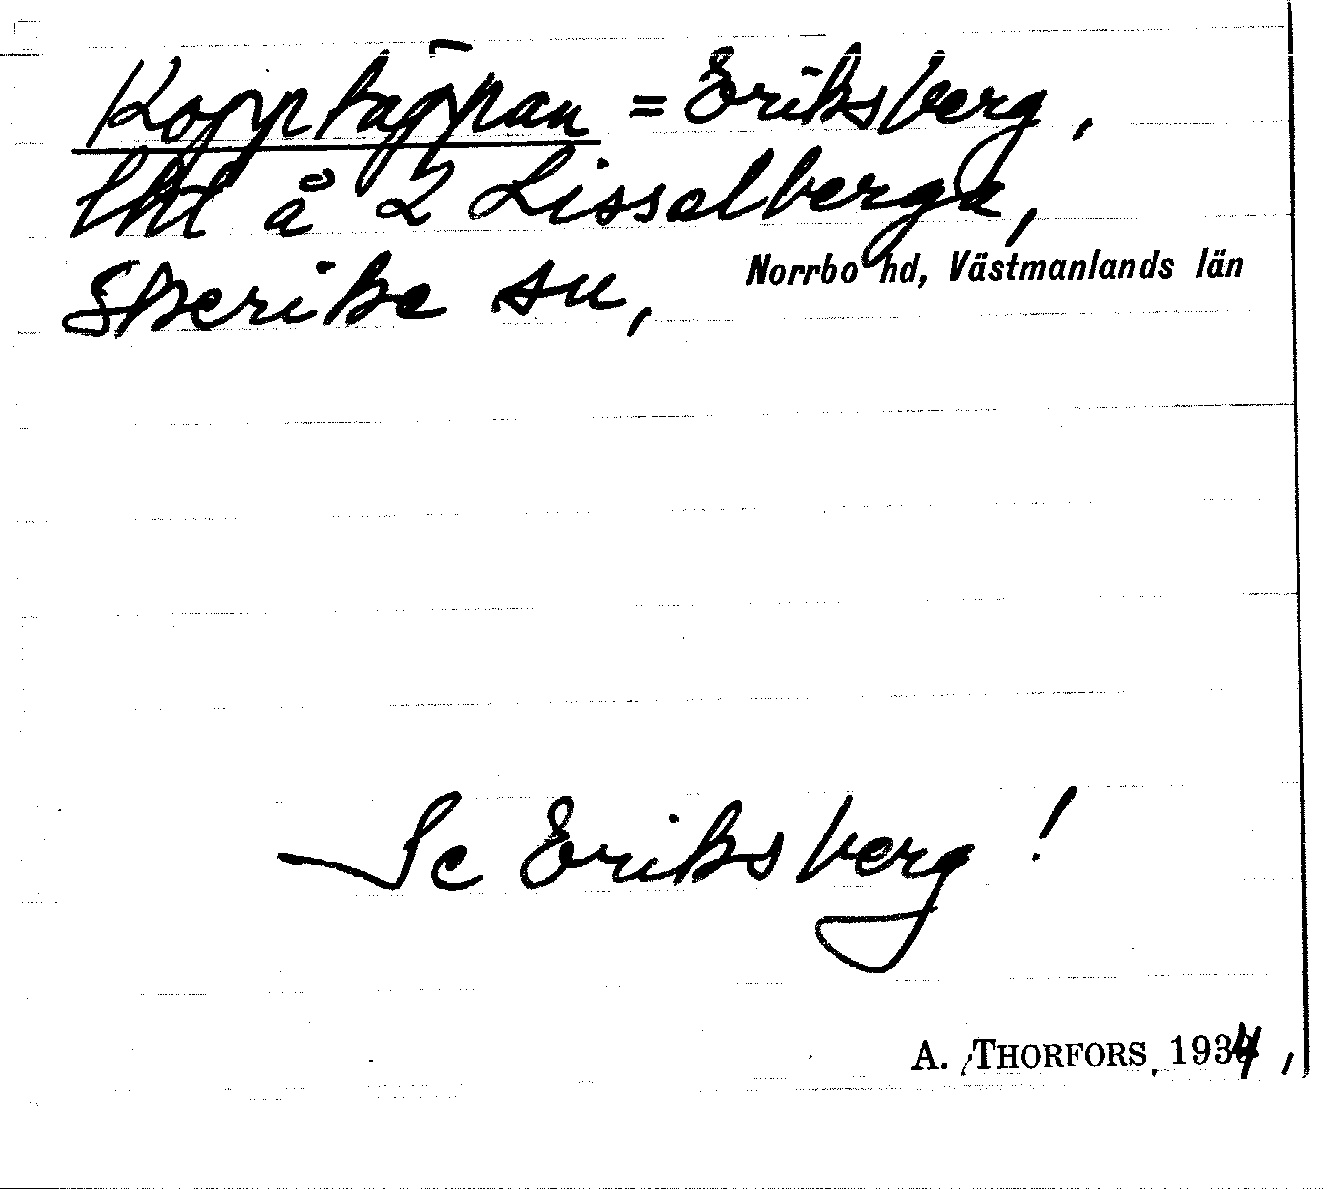 Kopptäppan = Eriksberg,
lht å 2 Lisselberga,
Skerike sn,
Norrbo hd, Västmanlands län
Se Eriksberg!
A. THORFORS 1934,